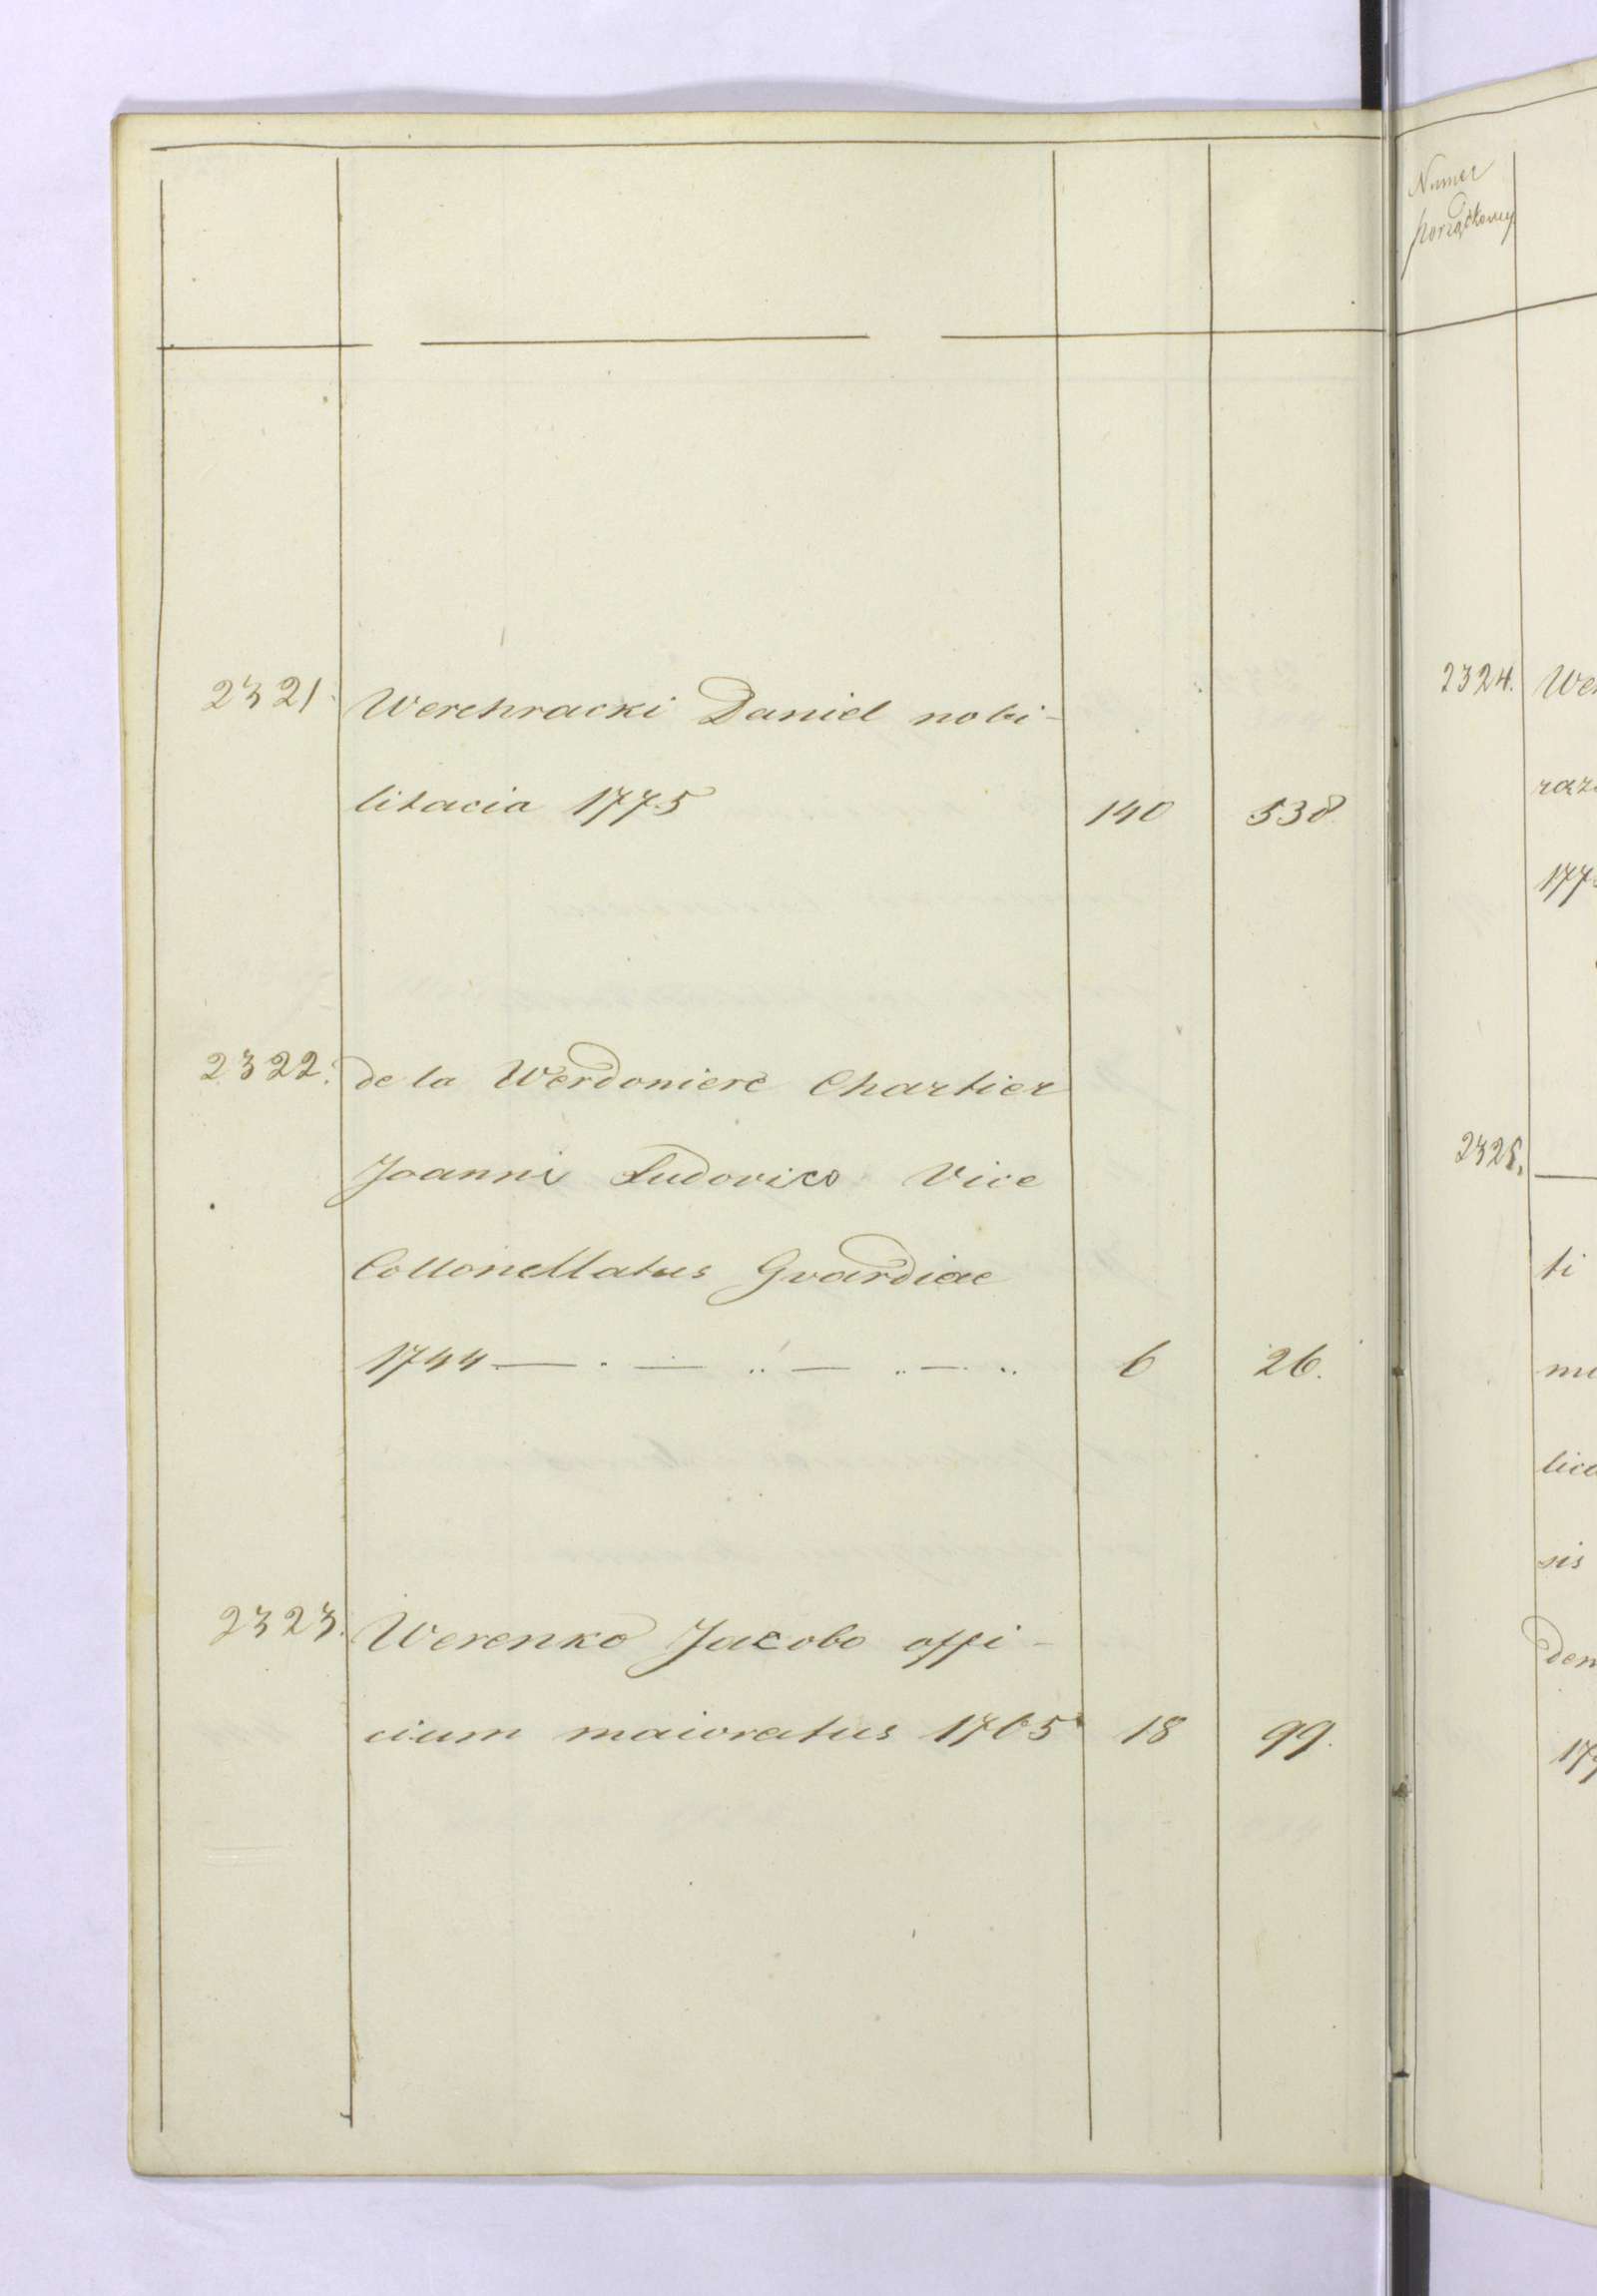 2321. Werchracki Daniel nobi-
litacia 1775 140 538.
2322. de la Werdoniere Chartier
Joanni Ludovico Vice
Collonellatus Gvardiae
1744 — . — .. — .. — .. 6 26.
2323. Werenko Jacobo offi-
cium maioratus 1765 18 99.
Numer
porządkowy
2324. We
raz
177
2325. —
ti
lica
sis
den
177